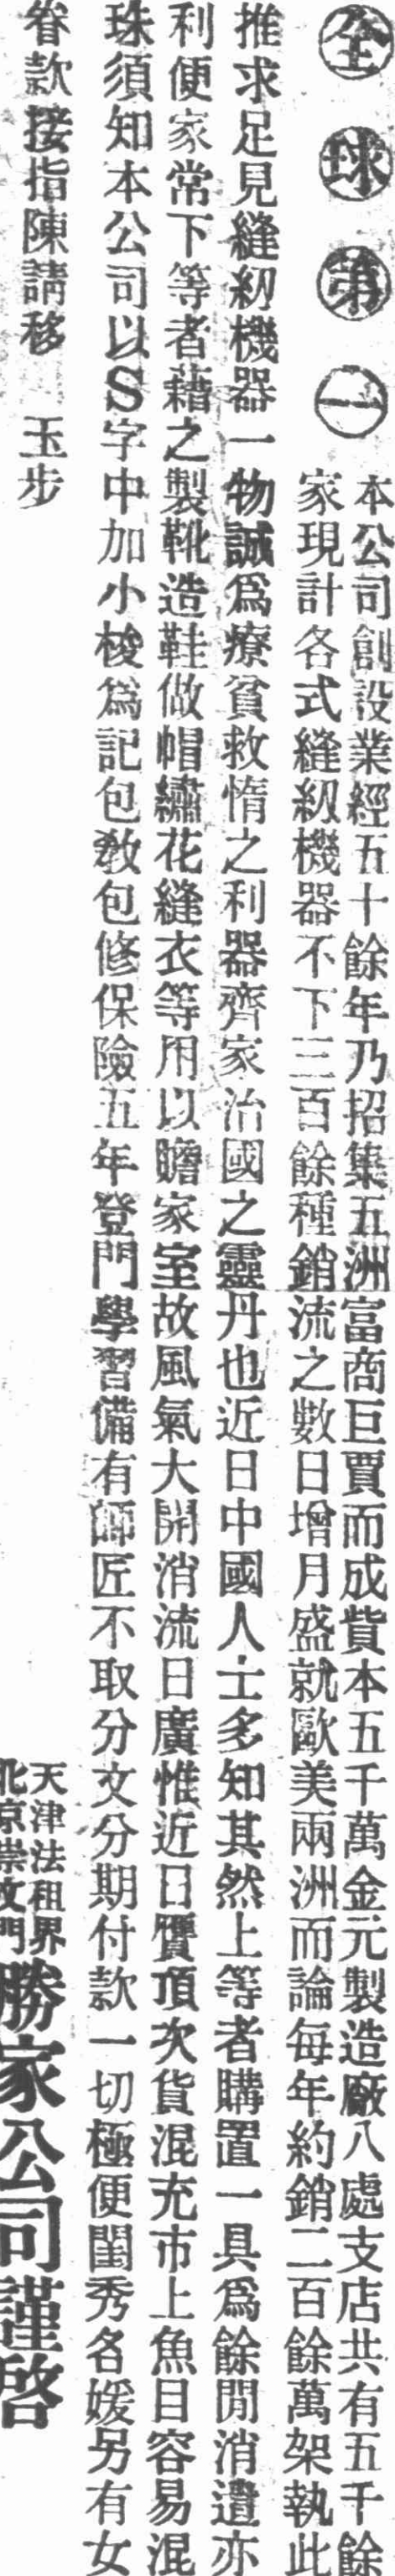 全球第一
本公司創設業經五十餘年乃招集五洲富商巨賈而成貲本五千萬金元製造廠八處支店共有五千餘
家現計各式縫紉機器不下三百餘種銷流之數日增月盛就歐美兩洲而論每年約銷二百餘萬架執此
推求足見縫紉機器一物誠爲療貧救惰之利器齊家治國之靈丹也近日中國人士多知其然上等者購置一具爲餘閒消遣亦
利便家常下等者藉之製靴造鞋做帽繡花縫衣等用以贍家室故風氣大開消流日廣惟近日贋頂次貨混充市上魚目容易混
珠須知本公司以S字中加小梭爲記包教包修保險五年登門學習備有師匠不取分文分期付款一切極便閨秀名媛另有女
眷款接指陳請移 玉步
天津法租界
北京崇文門
勝家公司謹啓